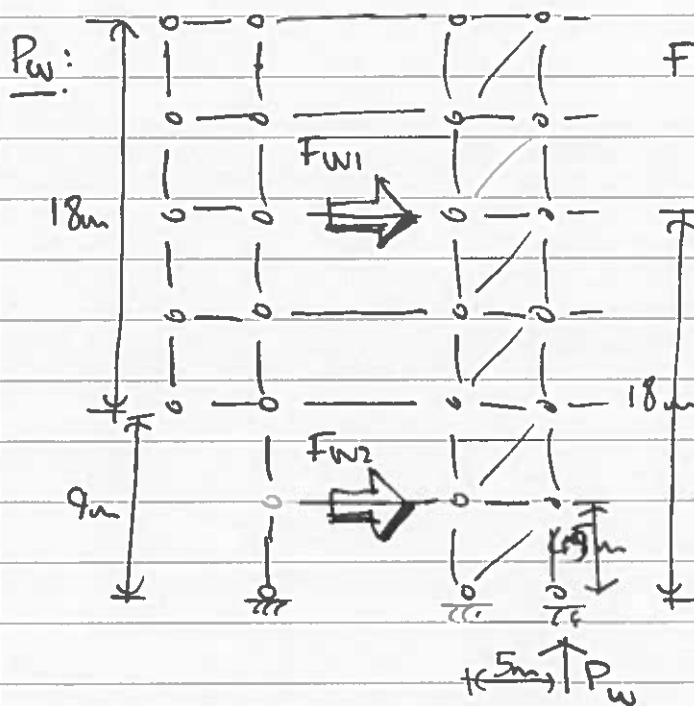 Pw:
F
Fw1
18m
18m
Fw2
9m
5m
Pw